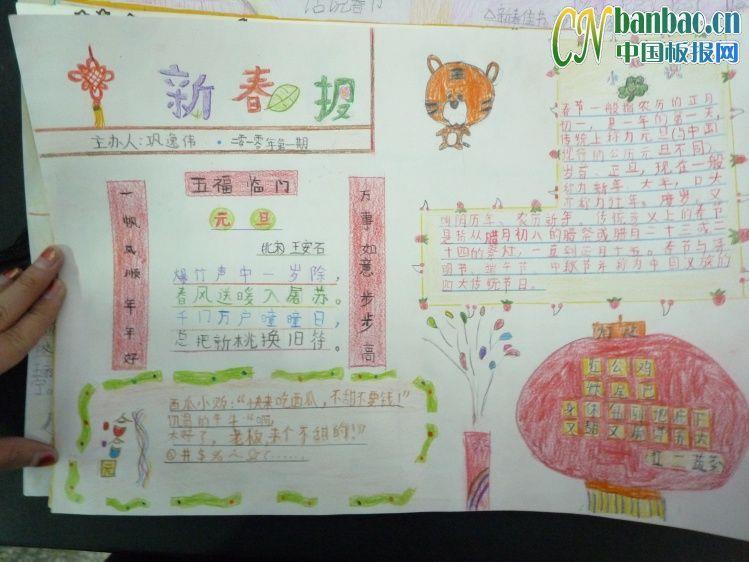 CN banbao.cn
中国板报网
新春报
主办人:巩逸伟·二零一零年第一期
五福临门
一帆风顺年年好
万事如意步步高
元旦
北宋 王安石
爆竹声中一岁除,
春风送暖入屠苏。
千门万户曈曈日,
总把新桃换旧符。
西瓜小贩:“快来吃西瓜,不甜不要钱!”
饥渴的牛牛:“啊,
太好了,老板来个不甜的!”
小 识
春节一般指农历的正月
初一,是一年的第一天,
传统上称为元旦(与中国
现行的公历元旦不同)、
岁首、正旦,现在一般
称为新年、大年,口头
阴历年、农历新年。传统意义上的春节
是指从腊月初八的腊祭或腊月二十三或二
十四的祭灶,一直到正月十五。春节与清
明节、端午节、中秋节并称为中国汉族的
四大传统节日。
红公鸡